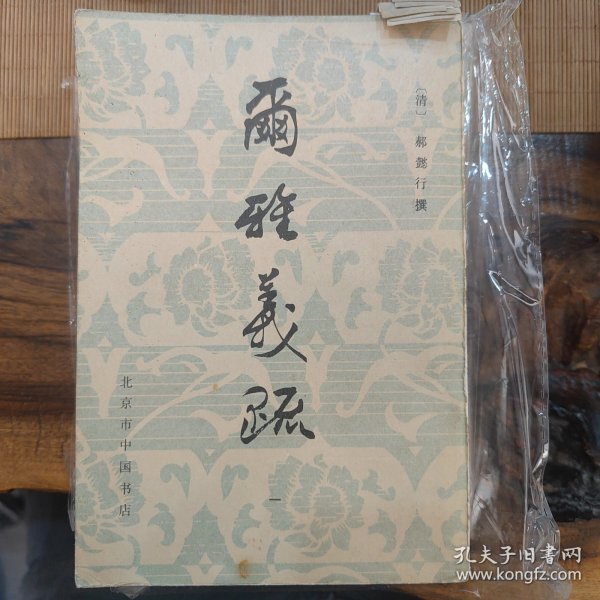 〔清〕郝懿行撰
爾雅義疏
一
北京市中国书店
孔夫子旧书网
www.kongfz.com